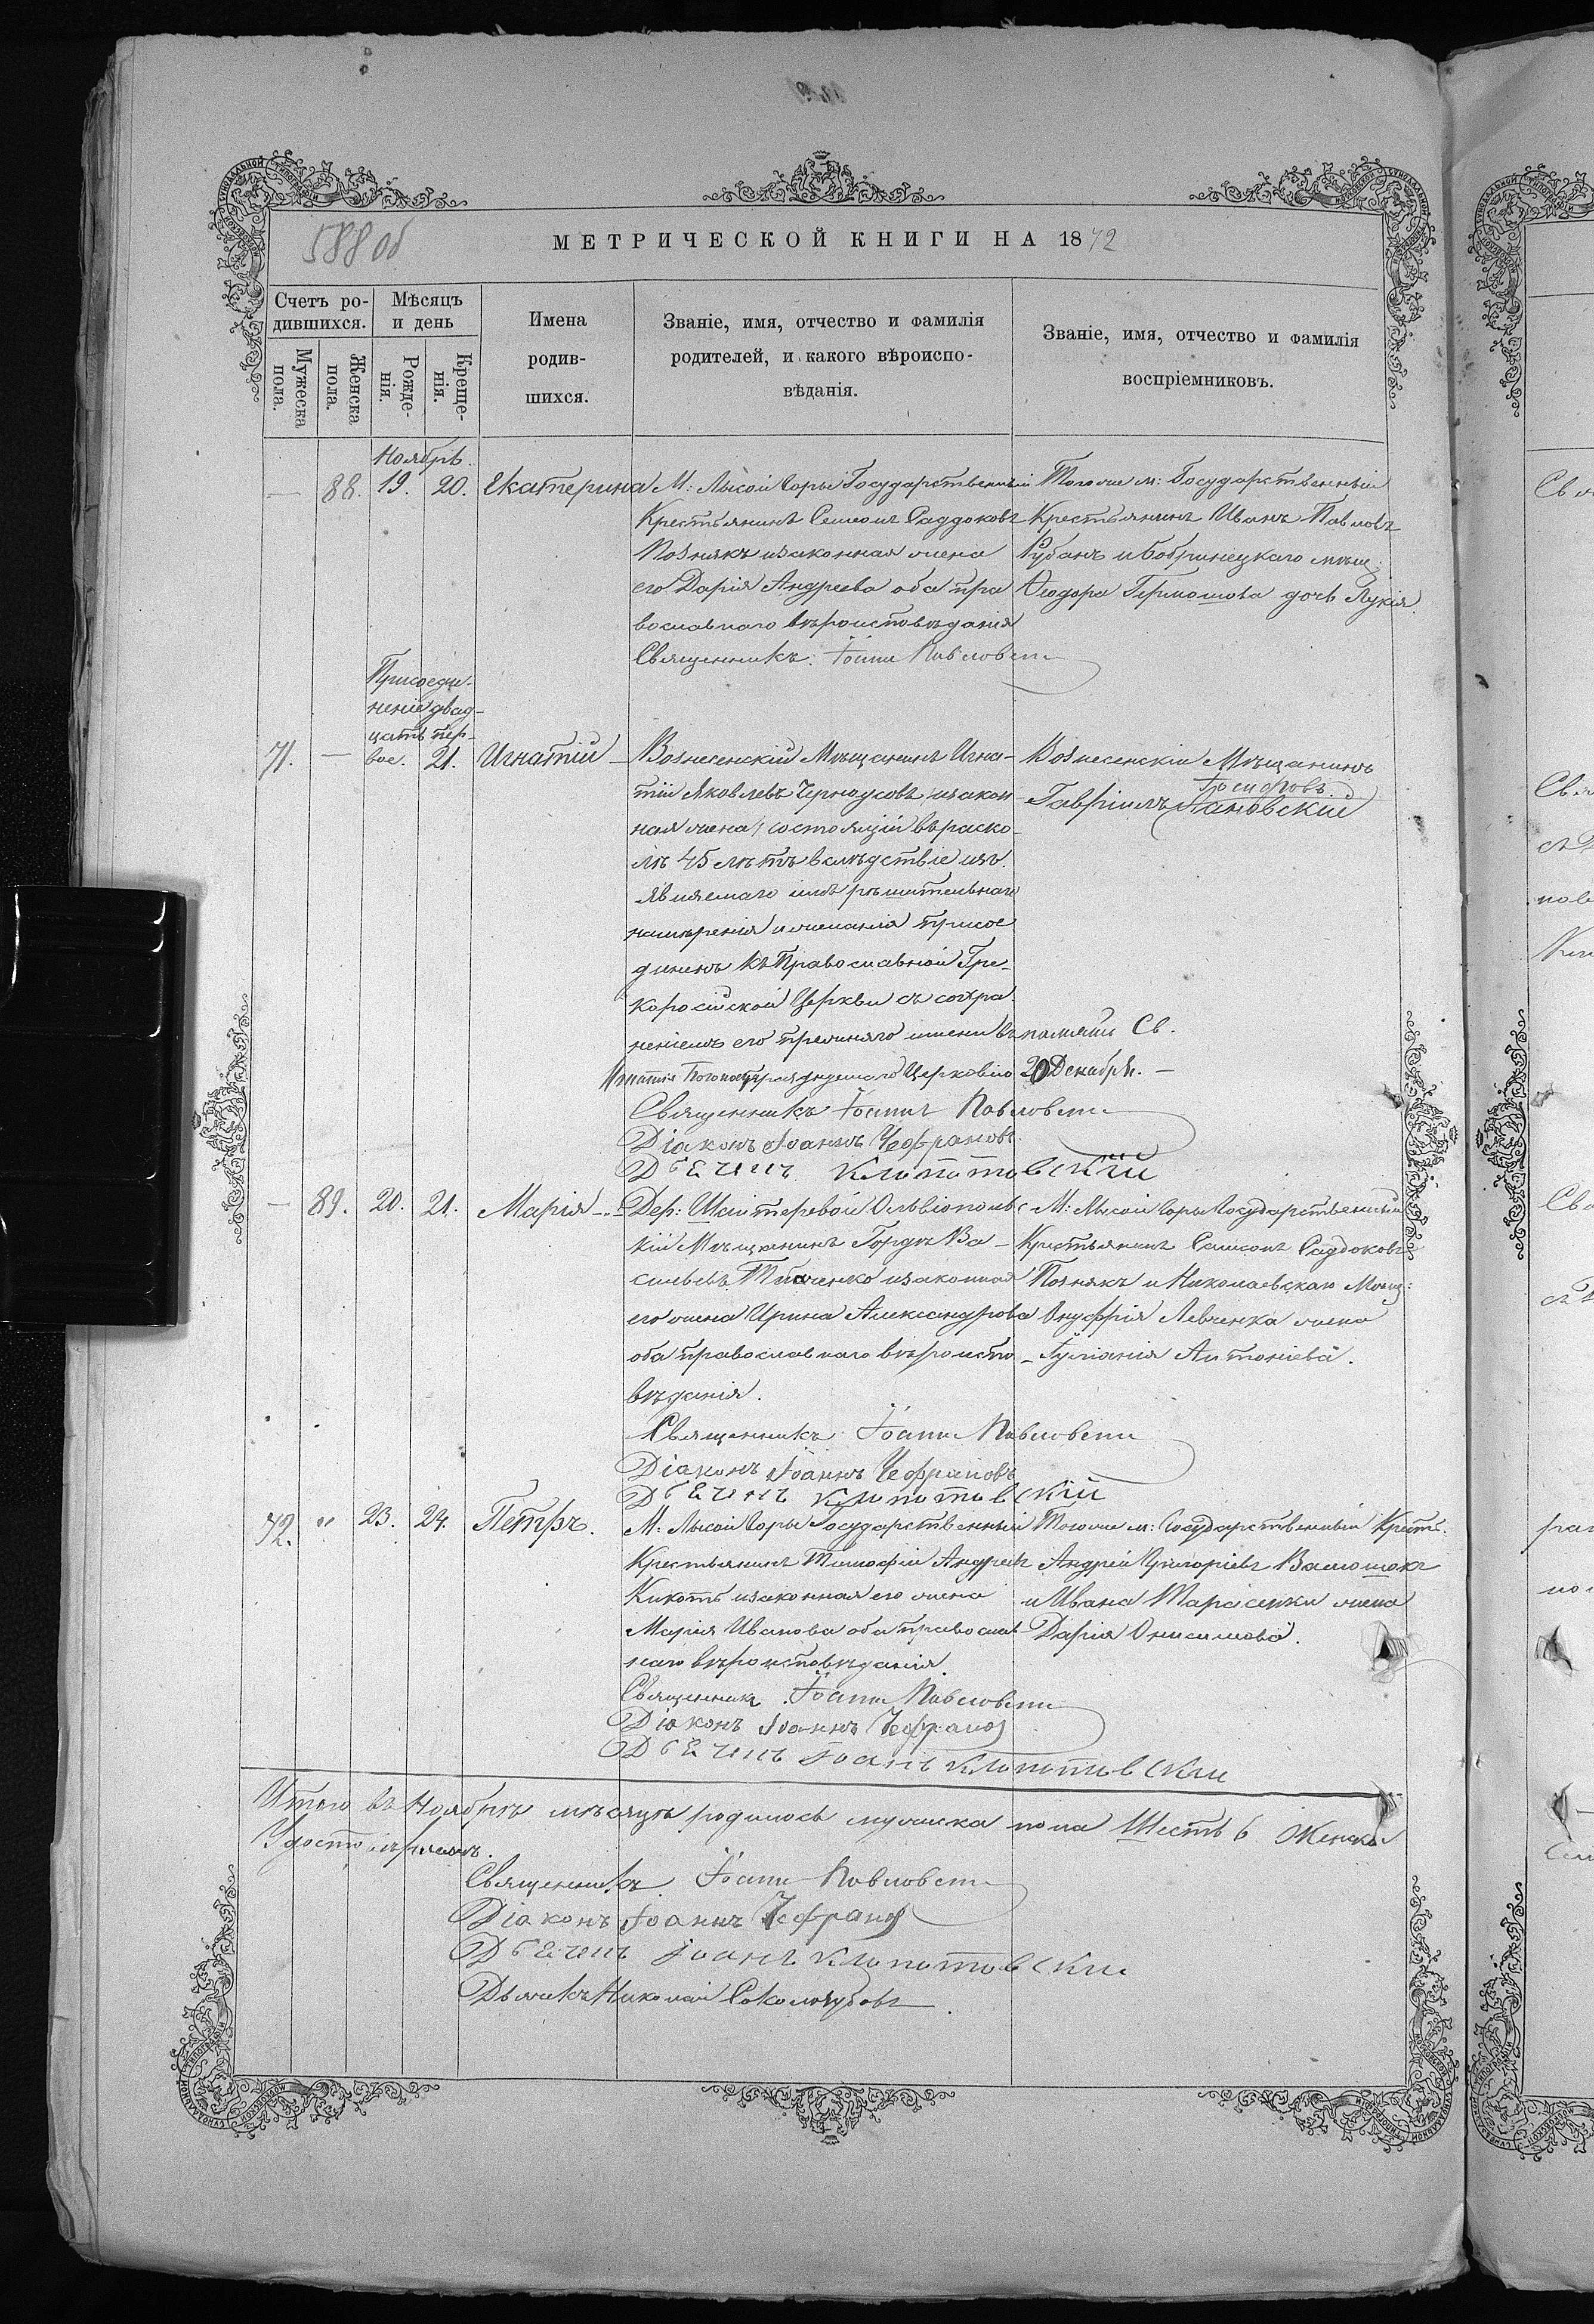 588 об
МЕТРИЧЕСКОЙ КНИГИ НА 1872
Счетъ ро-
дившихся.
Мужеска
пола.
Женска
пола.
Мѣсяцъ
и день
Рожде-
нія.
Креще-
нія.
Имена
родив-
шихся.
Званіе, имя, отчество и фамилія
родителей, и какого вѣроиспо-
вѣданія.
Званіе, имя, отчество и фамилія
воспріемниковъ.
Ноябрь.
— 88. 19. 20. Екатерина
М: Лысой Горы Государственный
Крестьянинъ Семеонъ Саддоковъ
Познякъ изаконная жена
его Дарія Андреева оба пра
вославнаго вѣроисповѣданія
Священникъ: Іоаннъ Павловскій
Тогоже м: Государственный
Крестьянинъ Иванъ Павловъ
Рубанъ и Бобринецкаго мѣщ:
Ѳеодора дочь Лукія.
Присоеди-
неніе двад-
цать пер-
вое.
71. — 21. Игнатій
Вознесенскій Мѣщанинъ Игна-
тій Яковлевъ Черноусовъ изакон
ная жена состоящій въ раско-
лѣ 45 лѣтъ вслѣдствіе изъ
являемаго имъ рѣшительнаго
намѣренія и желанія присое
диненъ къ Православной Гре-
коросійской Церкви съ сохра
неніемъ его прежняго имени въ памяти Св.
Игнатія Богоносца празднуемаго Церковію 20 Декабря. —
Священникъ Іоаннъ Павловскій
Діаконъ Іоаннъ Чефрановъ
Дьячекъ Клопотовскій
Вознесенскій Мѣщанинъ
Іосифовъ
Гавріилъ Лановскій
— 89. 20. 21. Марія
Дер: Шайтеровой Ольвіополь
кій Мѣщанинъ Гордѣ Ва-
сильевъ Ткаченко изаконная
его жена Ирина Александрова
оба православнаго вѣроиспо-
вѣданія.
Священникъ Іоаннъ Павловскій
Діаконъ Іоаннъ Чефрановъ
Дьячекъ Клопотовскій
М: Лысой Горы Государственный
Крестьянинъ Семеонъ Саддоковъ
Познякъ и Николаевскаго Мѣщ:
Онуфрія Левченка жена
Іуліанія Антоніева.
72. " 23. 24. Петръ.
М: Лысой Горы Государственный
Крестьянинъ Тимофій Андреевъ
Кикоть изаконная его жена
Марія Иванова оба православ
наго вѣроисповѣданія.
Священникъ Іоаннъ Павловскій
Діаконъ Іоаннъ Чефрановъ
Дьячекъ Іоанъ Клопотовскій
Тогоже м: Государственный Крест.
Андрей Григоріевъ Валюшокъ
и Ивана Тарасенки жена
Дарія Онисимова.
Итого въ Ноябрѣ мѣсяцѣ родилось мужеска пола Шесть 6 Женска
Удостовѣряемъ.
Священникъ Іоаннъ Павловскій
Діаконъ Іоаннъ Чефрановъ
Дьячекъ Іоанъ Клопотовскій
Дьячекъ Николай Сокологубовъ